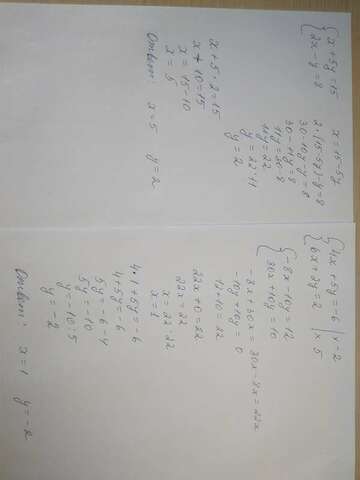 x + 5y = 15
2x - y = 8
x = 15 - 5y
2·(15-5y)-y=8
30-10y-y=8
30-11y=8
11y=30-8
11y=22
y=22:11
y=2
x+5·2=15
x+10=15
x=15-10
x=5
Ответ: x=5 y=2
4x+5y=-6 | x-2
6x+2y=2 | x 5
-8x-10y=12
30x+10y=10
-8x+30x=30x-8x=22x
-10y+10y=0
12+10=22
22x+0=22
22x=22
x=22:22
x=1
4·1+5y=-6
4+5y=-6
5y=-6-4
5y=-10
y=-10:5
y=-2
Ответ: x=1 y=-2